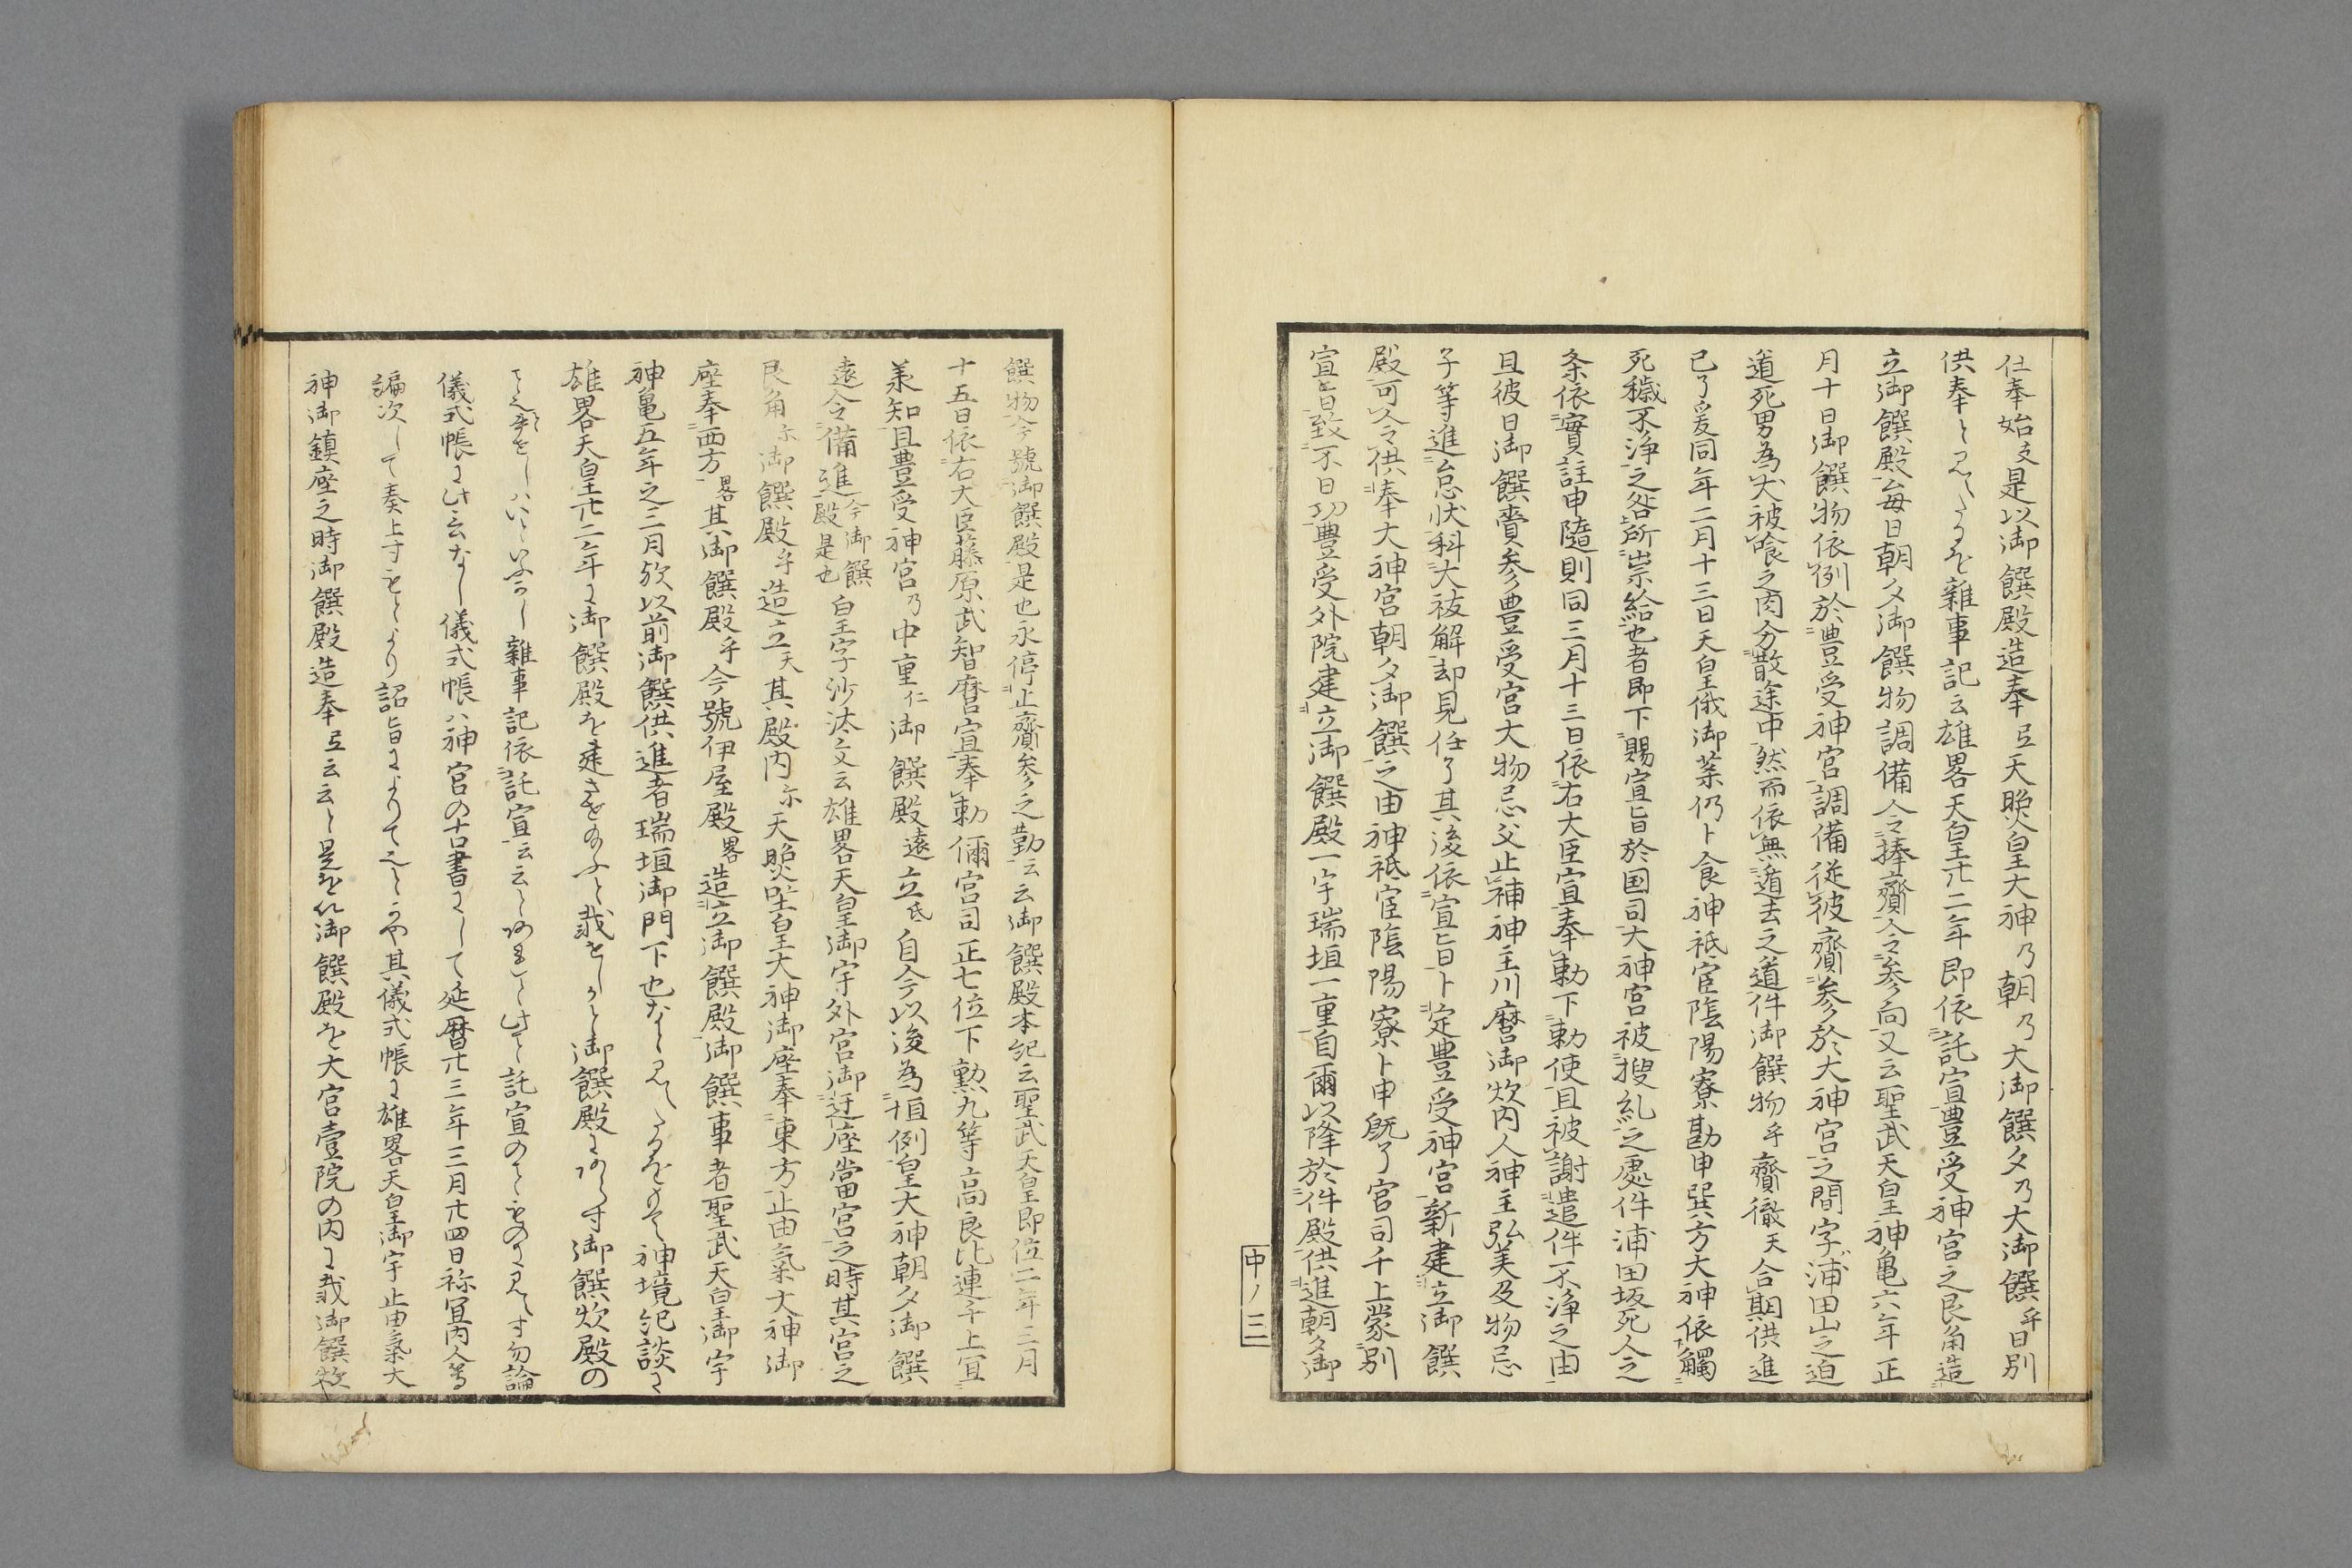 仕奉始支是以御饌殿造奉弖天照皇大神乃朝乃大御饌夕乃大御饌乎日別
供奉と見へたるを雑事記云雄畧天皇廿二年即依託宣豊受神宮之艮角造
立御饌殿毎日朝夕御饌物調備令捧齎令参向又云聖武天皇神亀六年正
月十日御饌物依例於豊受神宮調備従彼齎参於大神宮之間字浦田山之迫
道死男為犬被喰之肉分散途中然而依無遁去之道件御饌物乎齎徹天合期供進
已了爰同年二月十三日天皇俄御薬仍卜食神祇官陰陽寮勘申巽方大神依觸
死穢不浄之咎所祟給也者即下賜宣旨於国司大神宮被捜糺之處件浦田坂死人之
条依實註申隨則同三月十三日依右大臣宣奉勅下勅使且被謝遣件不浄之由
且彼日御饌賚参豊受宮大物忌父止補神主川麿御炊内人神主弘美及物忌
子等進怠状科大祓解却見任了其後依宣旨卜定豊受神宮新建立御饌
殿可令供奉大神宮朝夕御饌之由神祇官陰陽寮卜申既了宮司千上蒙別
宣旨致不日功豊受外院建立御饌殿一宇瑞垣一重自爾以降於件殿供進朝夕御
申ノ三
饌物今號御饌殿是也永停止齎参之勤云云御饌殿本紀云聖武天皇即位二年三月
十五日依右大臣藤原武智麿宣奉勅偁宮司正七位下勲九等高良比連千上宜
羕知且豊受神宮乃中重仁御饌殿遠立氏自今以後為恒例皇大神朝夕御饌
遠令備進今御饌殿是也白玉字沙汰文云雄畧天皇御宇外宮御迁座當宮之時其宮之
艮角尓御饌殿乎造立天其殿内尓天照坐皇大神御座奉東方止由氣大神御
座奉西方畧其御饌殿乎今號伊屋殿畧造立御饌殿御饌事者聖武天皇御宇
神亀五年之三月欤以前御饌供進者瑞垣御門下也なと見へたるをもて神境紀談に
雄畧天皇廿二年に御饌殿を建させ給ふと載せしかと御饌殿にあらす御饌炊殿の
雑事記依託宣云云とあれとも託宣のことものに見へす勿論
儀式帳に此云なし儀式帳ハ神宮の古書にして延暦廿三年三月廿四日祢冝内人等
編次して奏上すもとより詔旨によりて之とかや其儀式帳に雄畧天皇御宇止由氣大
神御鎮座之時御饌殿造奉弖云云と是を以御饌殿を大宮壹院の内に載御饌炊